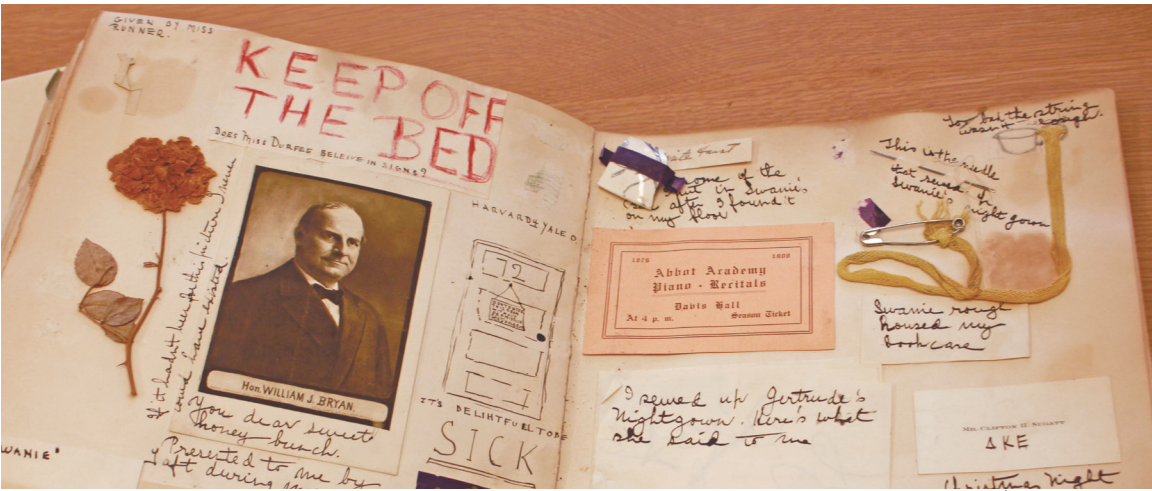 GIVEN BY MISS
RUNNER.
KEEP OFF
THE BED
DOES MISS DURFEE BELEIVE IN SIGNS?
If it hadn't been for this picture I never
could have existed.
Hon. WILLIAM J. BRYAN.
You dear sweet
honey bunch.
Presented to me by
Taft during
WANIE"
HARVARD 4 YALE 0
72
IT'S DELIHTFUL TO BE
SICK
one of the
put in Swanie's
after I found it
on my floor
1878 1908
Abbot Academy
Piano - Recitals
Davis Hall
At 4 p. m. Season Ticket
I sewed up Gertrude's
Nightgown. Here's what
she said to me
Too bad the string
wasn't rough.
This is the needle
that sewed up
Swanie's night gown
Swanie rough
housed my
book case
MR. CLIFTON H.
ΔKE
Christmas Night